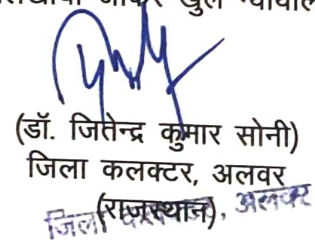 जाकर खुले
(डॉ. जितेन्द्र कुमार सोनी)
जिला कलक्टर, अलवर
(राजस्थान)
जिला कलक्टर, अलवर